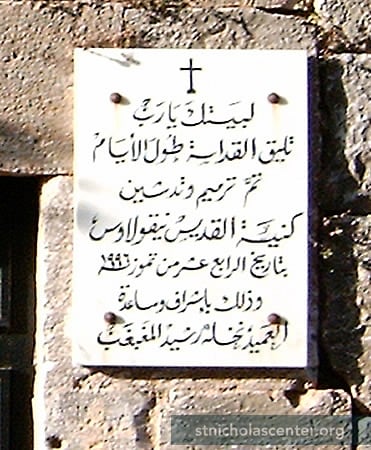 لبيتك يا رب
تليق القداسة طول الأيام
تمَّ ترميم وتدشين
كنيسة القديس نيقولاوس
بتاريخ الرابع عشر من تموز سنة ١٩٩٦
وذلك بإشراف ومساعدة
العميد نخله رشيد المعبغب
stnicholascenter.org